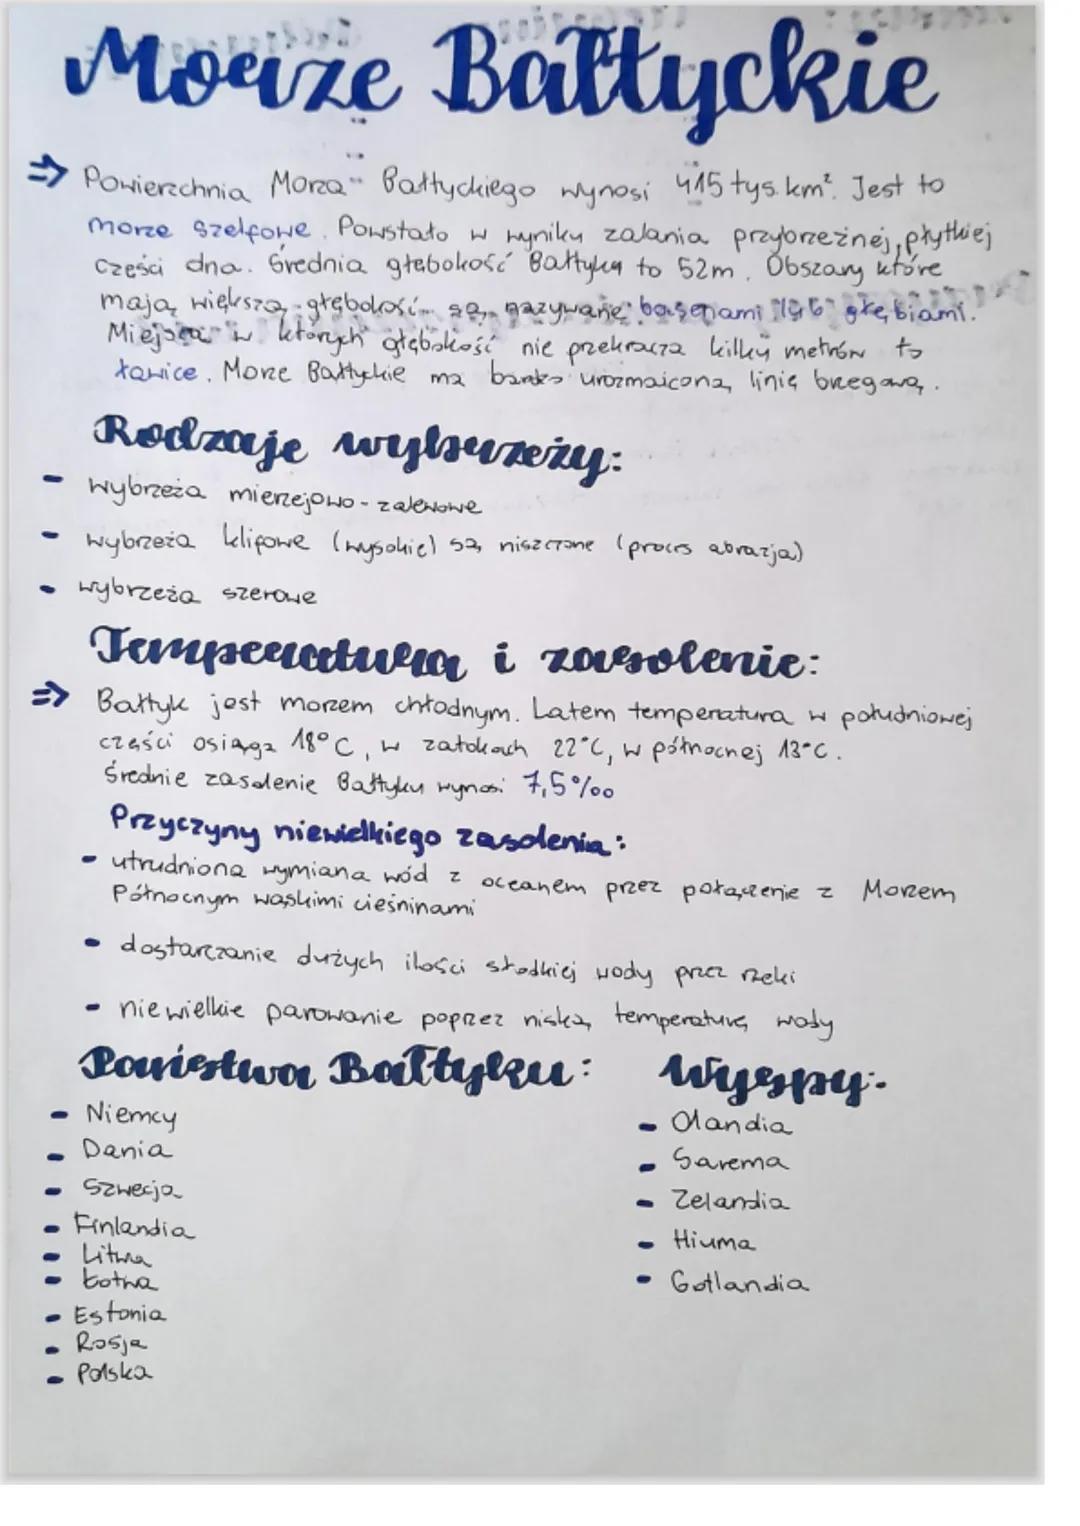 Morze Bałtyckie
⇒ Powierzchnia Morza Bałtyckiego wynosi 415 tys. km². Jest to
morze szelfowe. Powstało w wyniku zalania przybrzeżnej, płytkiej
części dna. Średnia głębokość Bałtyku to 52m. Obszary które
mają większą głębokość są nazywane basenami lub głębiami.
Miejsca w których głębokość nie przekracza kilku metrów to
ławice. Morze Bałtyckie ma bardzo urozmaiconą linię brzegową.
Rodzaje wybrzeży:
- wybrzeża mierzejowo-zalewowe
- wybrzeża klifowe (wysokie) są niszczone (proces abrazja)
- wybrzeża szerowe
Temperatura i zasolenie:
⇒ Bałtyk jest morzem chłodnym. Latem temperatura w południowej
części osiąga 18°C, w zatokach 22°C, w północnej 13°C.
Średnie zasolenie Bałtyku wynosi 7,5‰
Przyczyny niewielkiego zasolenia:
- utrudniona wymiana wód z oceanem przez połączenie z Morzem
Północnym wąskimi cieśninami
- dostarczanie dużych ilości słodkiej wody przez rzeki
- niewielkie parowanie poprzez niską temperaturę wody
Państwa Bałtyku:
- Niemcy
- Dania
- Szwecja
- Finlandia
- Litwa
- Łotwa
- Estonia
- Rosja
- Polska
Wyspy:
- Olandia
- Sarema
- Zelandia
- Hiuma
- Gotlandia